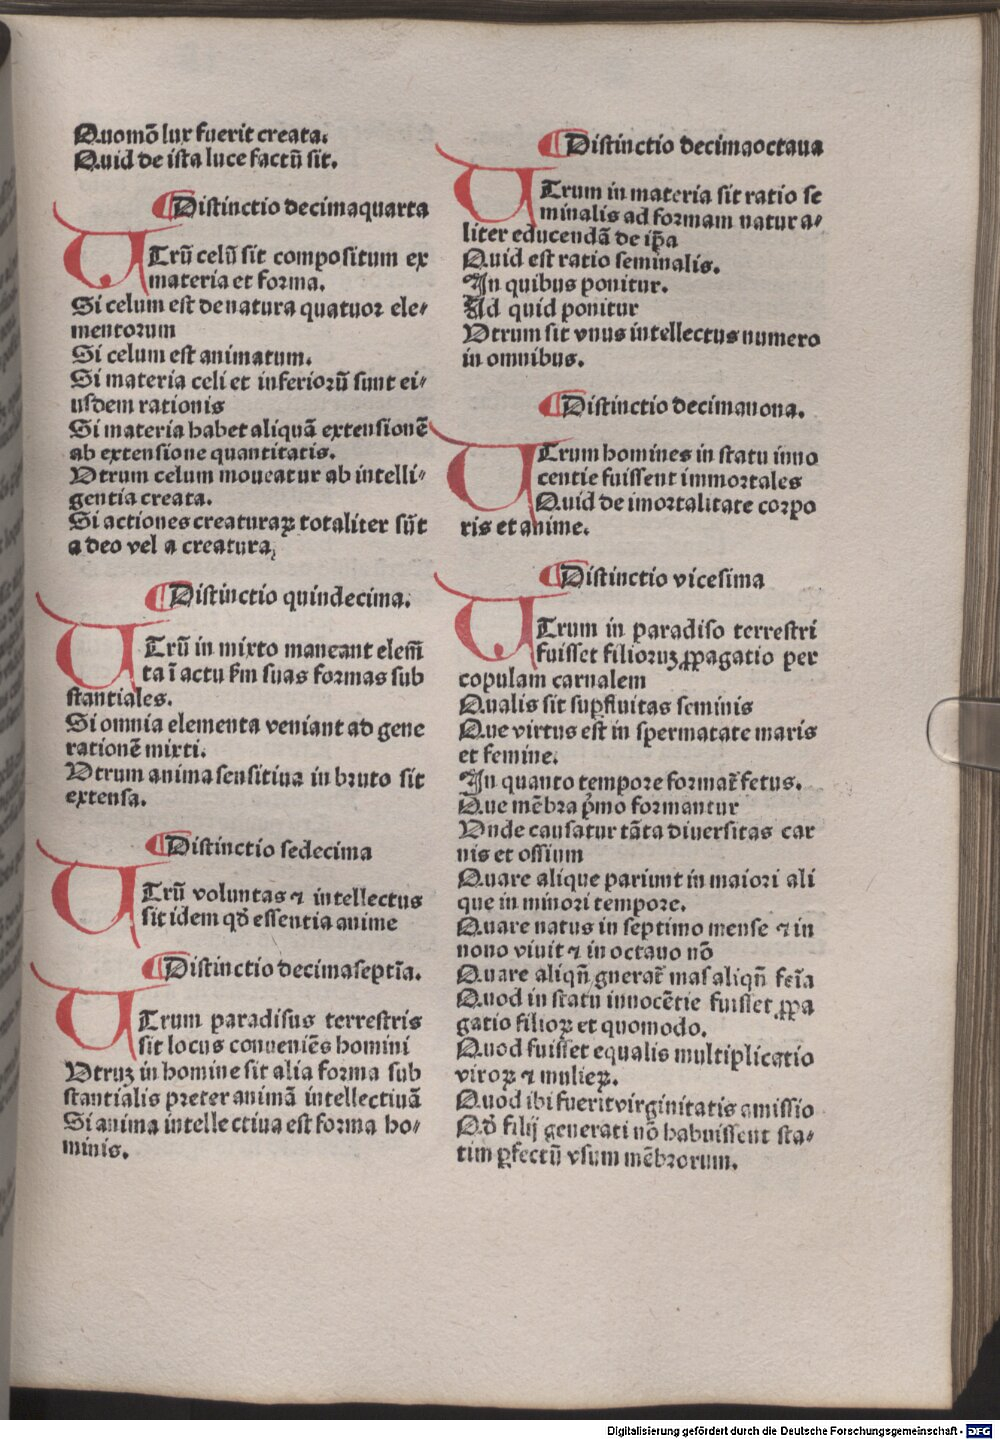 Quomõ lux fuerit creata.
Quid de ista luce factũ sit.
¶Distinctio decimaquarta
UTrũ celũ sit compositum ex
materia et forma.
Si celum est de natura quatuor ele⸗
mentorum
Si celum est animatum.
Si materia celi et inferiorũ sunt ei⸗
usdem rationis
Si materia habet aliquã extensionẽ
ab extensione quantitatis.
Vtrum celum moueatur ab intelli⸗
gentia creata.
Si actiones creaturaꝝ totaliter sũt
a deo vel a creatura.
¶Distinctio quindecima.
UTrũ in mixto maneant elem̃
ta ĩ actu ẜm suas formas sub
stantiales.
Si omnia elementa veniant ad gene
rationẽ mixti.
Vtrum anima sensitiua in bruto sit
extensa.
¶Distinctio sedecima
UTrũ voluntas ⁊ intellectus
sit idem qđ essentia anime
¶Distinctio decimasептĩa.
UTrum paradisus terrestris
sit locus conueniẽs homini
Vtruꝫ in homine sit alia forma sub
stantialis preter animã intellectiuã
Si anima intellectiua est forma ho⸗
minis.
¶Distinctio decimaoctaua
UTrum in materia sit ratio se
minalis ad formam natura⸗
liter educendã de ip̃a
Quid est ratio seminalis.
In quibus ponitur.
Ad quid ponitur
Vtrum sit vnus intellectus numero
in omnibus.
¶Distinctio decimanona.
UTrum homines in statu inno
centie fuissent immortales
Quid de imortalitate corpo
ris et anime.
¶Distinctio vicesima
UTrum in paradiso terrestri
fuisset filioruꝫ ꝓpagatio per
copulam carnalem
Qualis sit suꝑfluitas seminis
Que virtus est in spermatate maris
et femine.
In quanto tempore format̃ fetus.
Que mẽbra p̃mo formantur
Vnde causatur tãta diuersitas car
nis et ossium
Quare alique pariunt in maiori ali
que in minori tempore.
Quare natus in septimo mense ⁊ in
nono viuit ⁊ in octauo nõ
Quare aliqñ gnerat̃ mas aliqñ feĩa
Quod in statu innocẽtie fuisset ꝓpa
gatio filioꝝ et quomodo.
Quod fuisset equalis multiplicatio
viroꝝ ⁊ mulieꝝ.
Quod ibi fuerit virginitatis amissio
Qđ filij generati nõ habuissent sta⸗
tim ꝑfectũ vsum mẽbrorum.
Digitalisierung gefördert durch die Deutsche Forschungsgemeinschaft - DFG